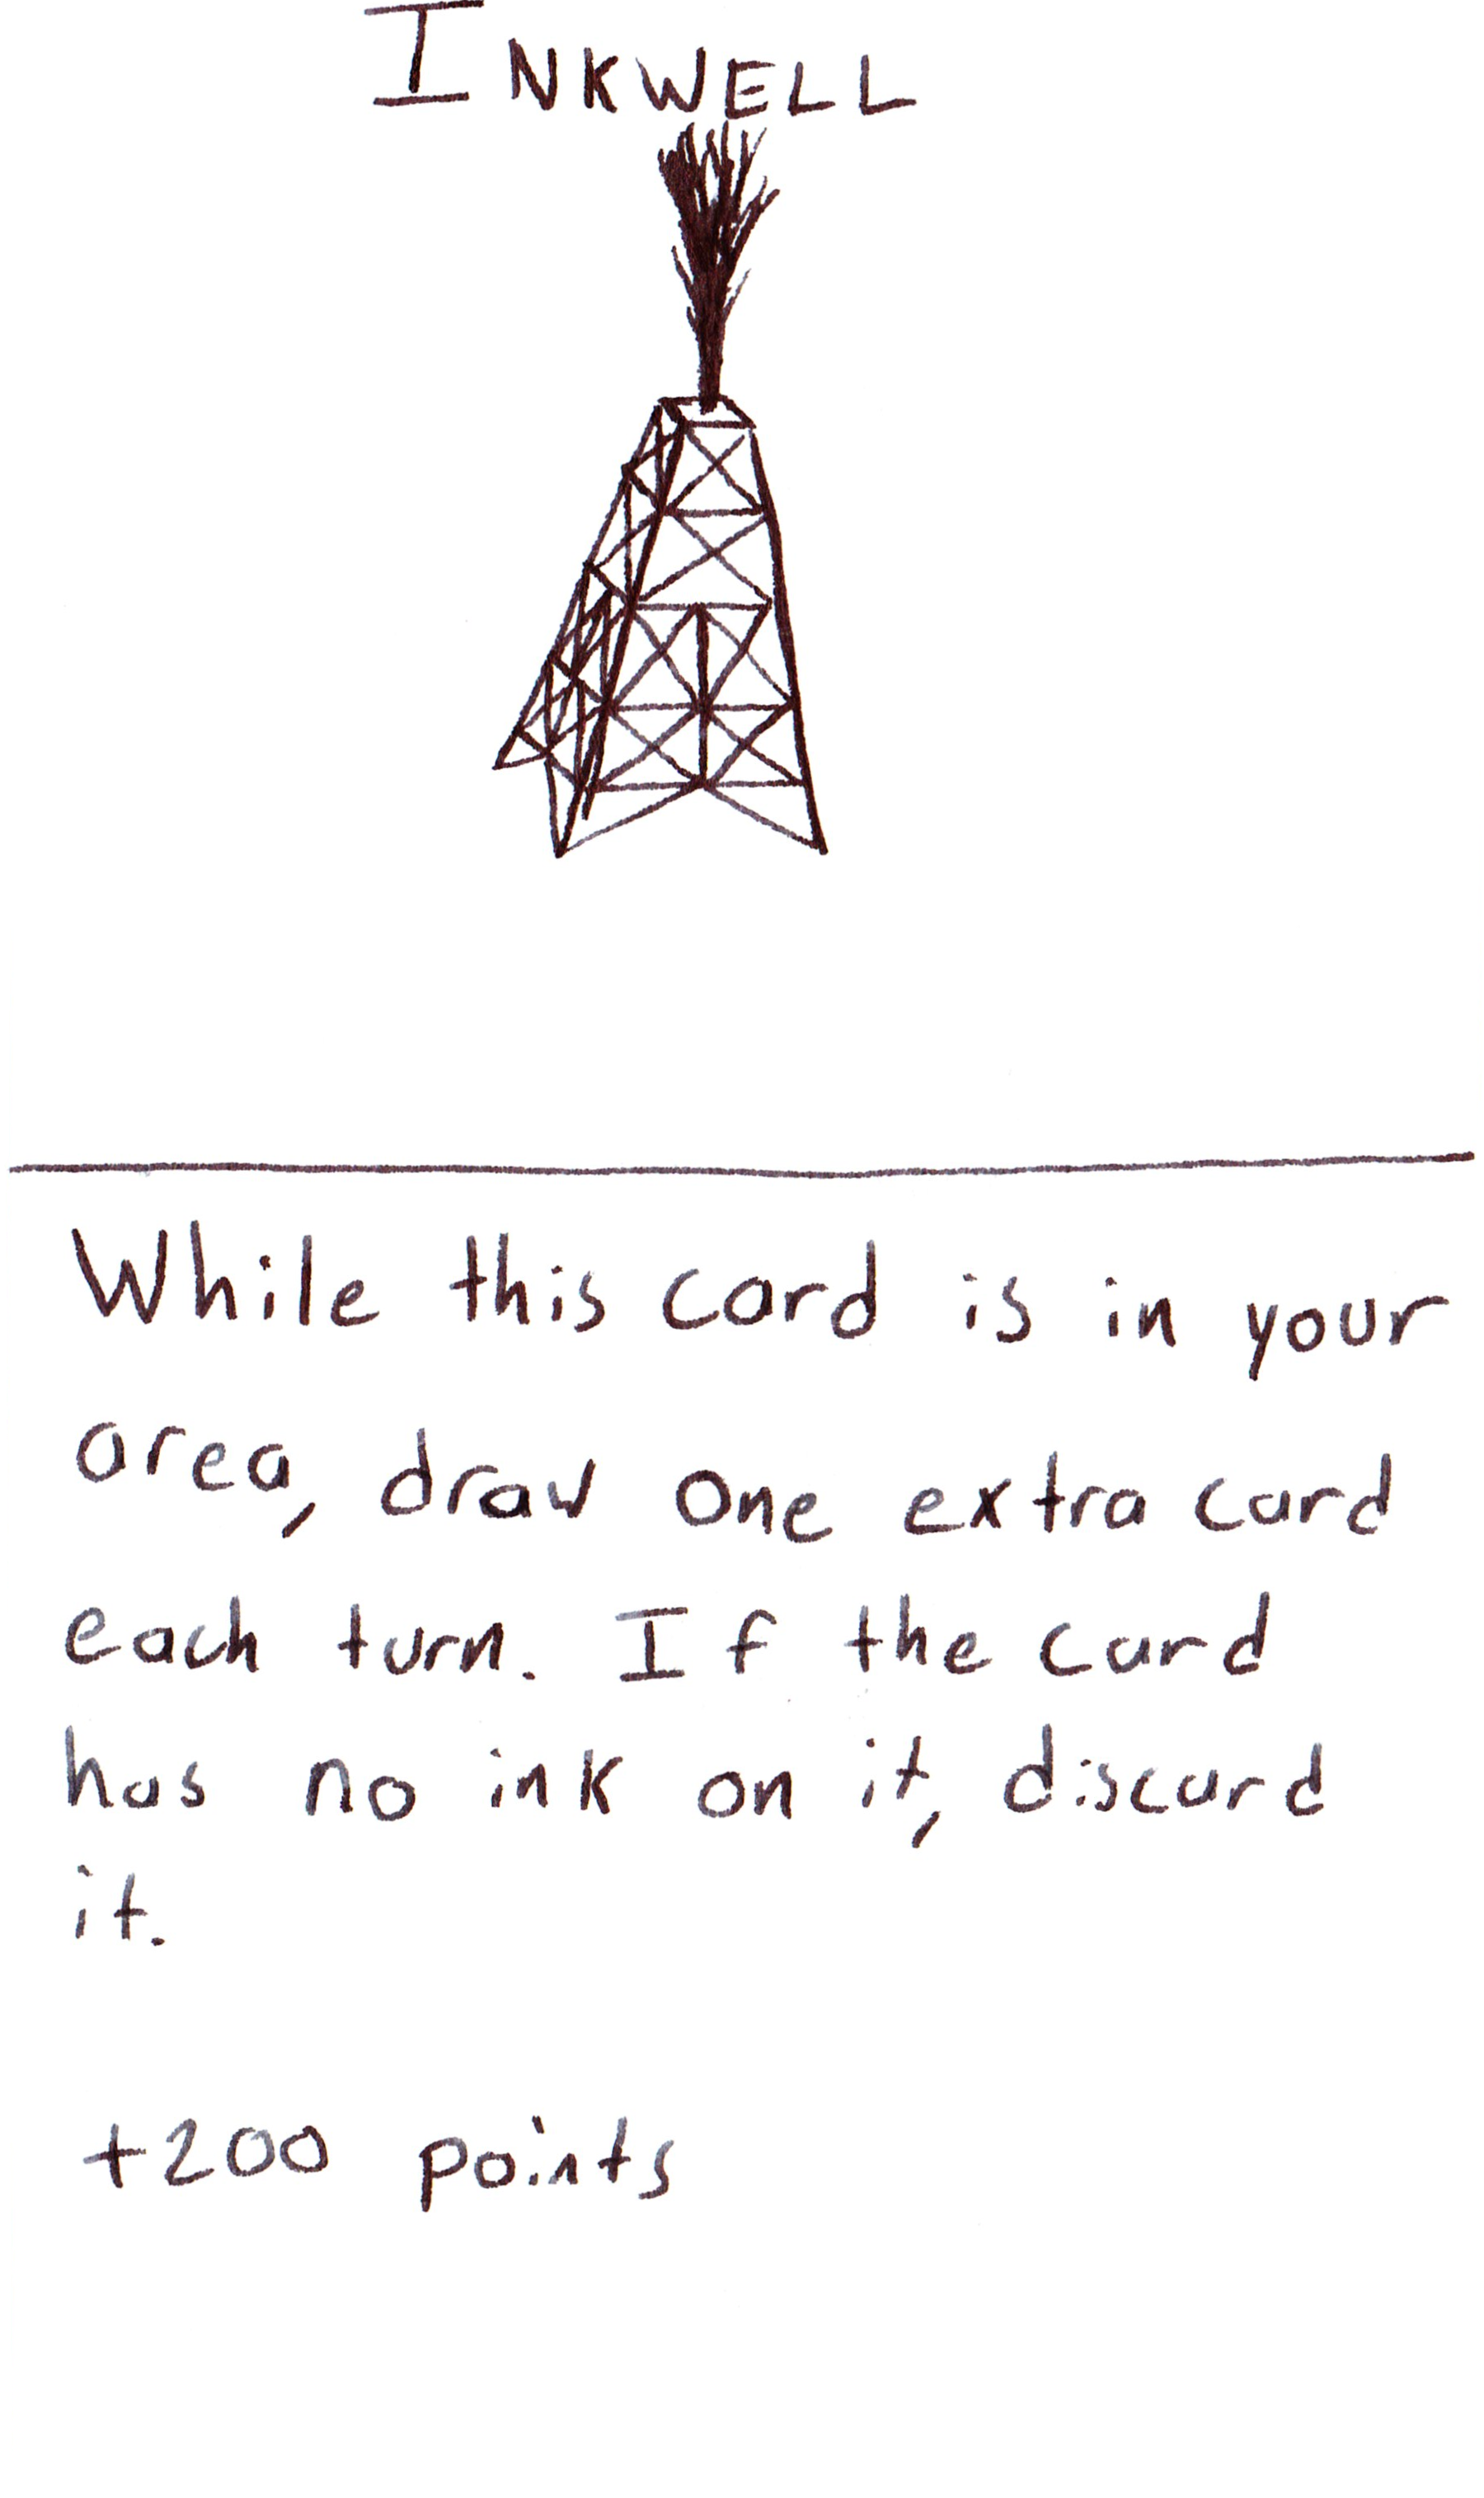 INKWELL
While this card is in your
area, draw one extra card
each turn. If the card
has no ink on it, discard
it.
+200 points